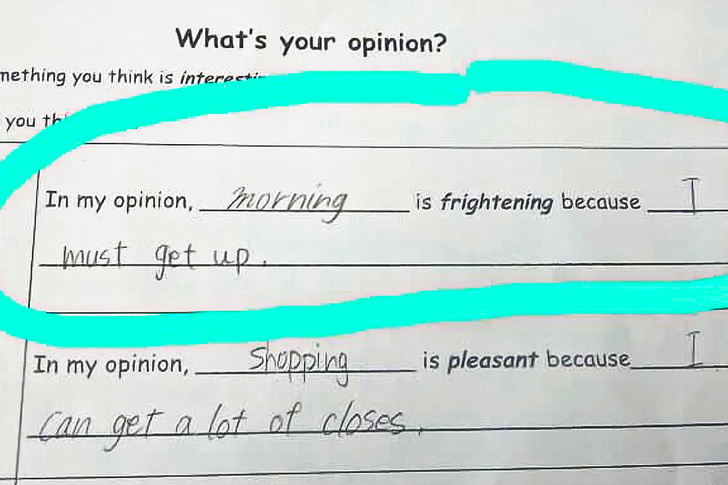 What's your opinion?
mething you think is interesti
you th
In my opinion, morning is frightening because I
must get up.
In my opinion, Shopping is pleasant because I
can get a lot of closes.